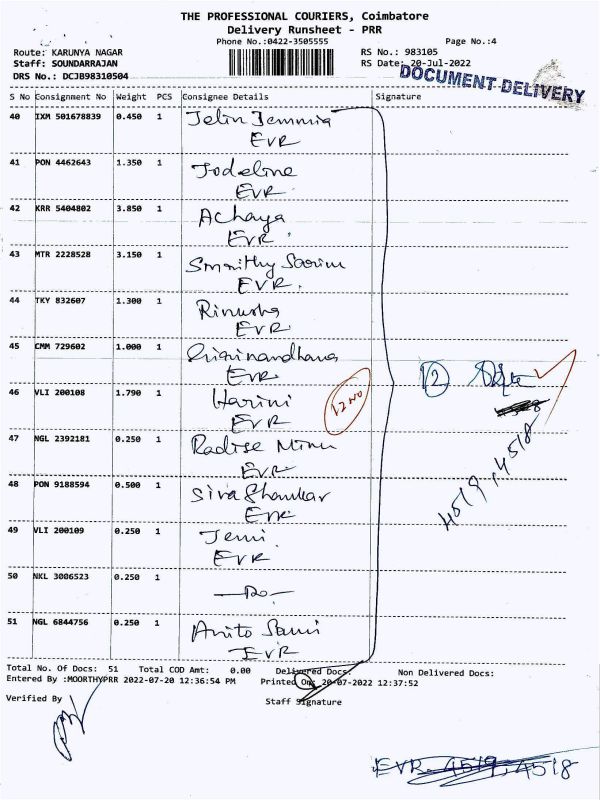 THE PROFESSIONAL COURIERS, Coimbatore
Delivery Runsheet - PRR
Phone No.:0422-3505555 Page No.:4
Route: KARUNYA NAGAR RS No.: 983105
Staff: SOUNDARRAJAN RS Date: 20-Jul-2022
DRS No.: DCJB98310504
DOCUMENT DELIVERY
S No Consignment No Weight PCS Consignee Details Signature
40 IXM 501678839 0.450 1 Jelin Jemmia
EVR
41 PON 4462643 1.350 1 Jodeline
EVR
42 KRR 5404802 3.850 1 Achaya
EVR
43 MTR 2228528 3.150 1
EVR
44 TKY 832607 1.300 1 Rinusha
EVR
45 CMM 729602 1.000 1
EVR
12
46 VLI 200108 1.790 1 Harini
EVR
12 NO
47 NGL 2392181 0.250 1 Radise Minu
EVR
4519, 4518
48 PON 9188594 0.500 1 Siva Shankar
EVR
49 VLI 200109 0.250 1 Jemi
EVR
50 NKL 3006523 0.250 1 —Do—
51 NGL 6844756 0.250 1 Anito Sami
EVR
Total No. Of Docs: 51 Total COD Amt: 0.00 Delivered Docs: Non Delivered Docs:
Entered By :MOORTHYPRR 2022-07-20 12:36:54 PM Printed On: 20-07-2022 12:37:52
Verified By Staff Signature
EVR. 4519, 4518